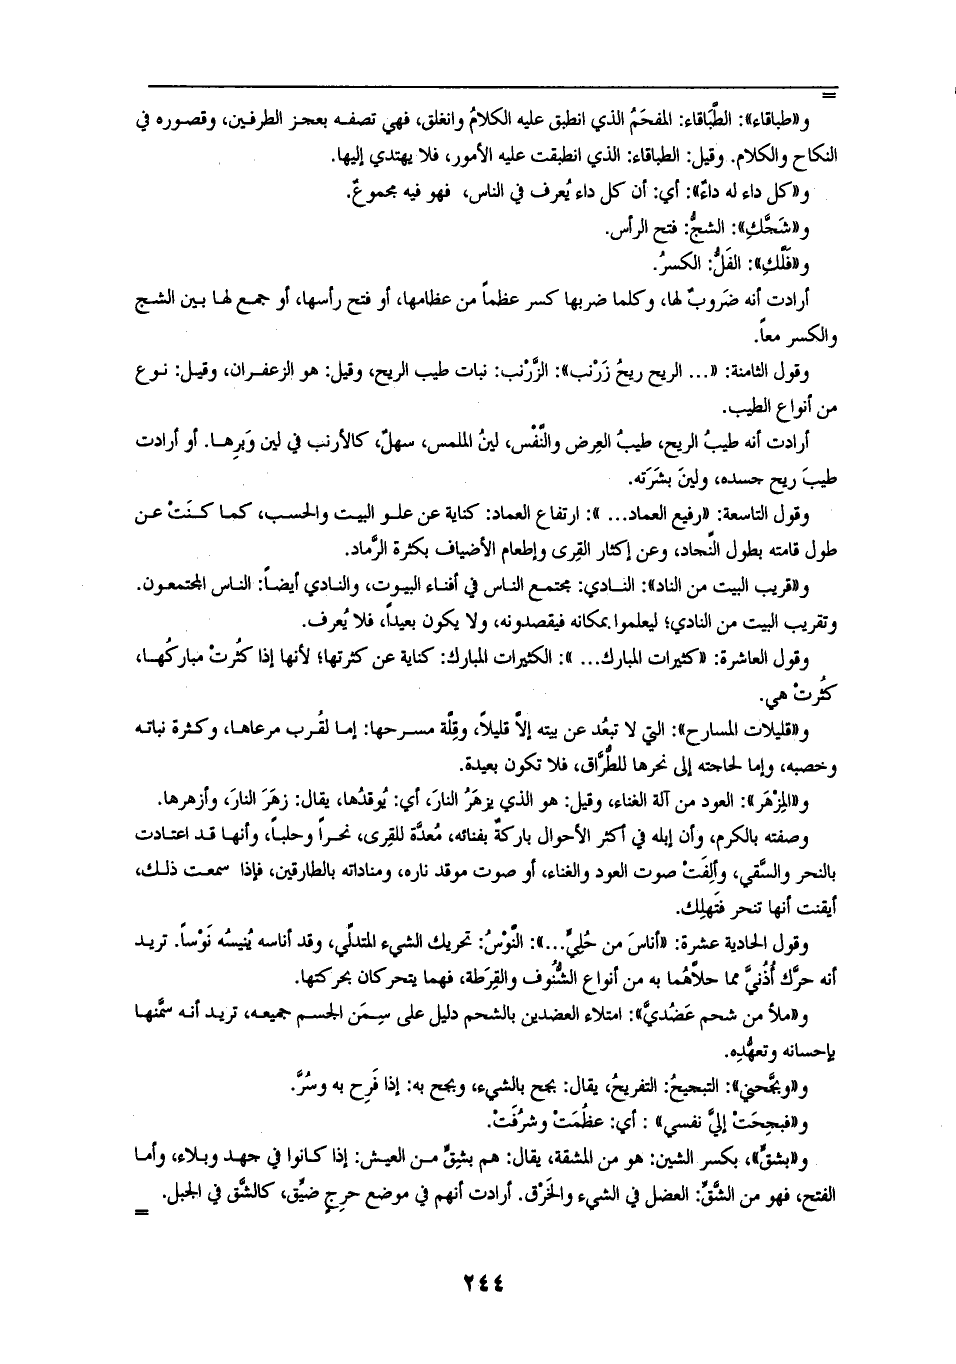 =
و«طباقاء»: الطَّبَاقاء: المفحَمُ الذي انطبق عليه الكلامُ وانغلق، فهي تصفه بعجز الطرفين، وقصوره في
النكاح والكلام. وقيل: الطباقاء: الذي انطبقت عليه الأمور، فلا يهتدي إليها.
و«كل داء له داءٌ»: أي: أن كل داء يُعرف في الناس، فهو فيه مجموعٌ.
و«شَجَّكِ»: الشجُّ: فتح الرأس.
و«فَلَّكِ»: الفَلُّ: الكسرُ.
أرادت أنه ضَروبٌ لها، وكلما ضربها كسر عظماً من عظامها، أو فتح رأسها، أو جمع لها بين الشج
والكسر معاً.
وقول الثامنة: «... الريح ريحُ زَرْنب»: الزَّرْنب: نبات طيب الريح، وقيل: هو الزعفران، وقيل: نوع
من أنواع الطيب.
أرادت أنه طيبُ الريح، طيبُ العِرض والنَّفْس، لينُ الملمس، سهلٌ، كالأرنب في لين وَبَرِها. أو أرادت
طيبَ ريح جسده، ولينَ بشَرَته.
وقول التاسعة: «رفيع العماد... »: ارتفاع العماد: كناية عن علو البيت والحسب، كما كنَتْ عن
طول قامته بطول النِّجاد، وعن إكثار القِرى وإطعام الأضياف بكثرة الرَّماد.
و«قريب البيت من الناد»: النادي: مجتمع الناس في أفناء البيوت، والنادي أيضاً: الناس المجتمعون.
وتقريب البيت من النادي؛ ليعلموا بمكانه فيقصدونه، ولا يكون بعيداً، فلا يُعرف.
وقول العاشرة: «كثيرات المبارك... »: الكثيرات المبارك: كناية عن كثرتها؛ لأنها إذا كثُرتْ مباركُها،
كثُرتْ هي.
و«قليلات المسارح»: التي لا تبعُد عن بيته إلاَّ قليلاً، وقِلَّة مسرحها: إما لقُرب مرعاها، وكثرة نباته
وخصبه، وإما لحاجته إلى نحرها للطُّرَّاق، فلا تكون بعيدة.
و«المِزْهَر»: العود من آلة الغناء، وقيل: هو الذي يزهَرُ النارَ، أي: يُوقدُها، يقال: زهَرَ النارَ، وأزهرها.
وصفته بالكرم، وأن إبله في أكثر الأحوال باركةٌ بفنائه، مُعدَّة للقِرى، نحراً وحلباً، وأنها قد اعتادت
بالنحر والسَّقي، وألِفَتْ صوت العود والغناء، أو صوت موقد ناره، ومناداته بالطارقين، فإذا سمعت ذلك،
أيقنت أنها تنحر فَتَهلِك.
وقول الحادية عشرة: «أناسَ من حُلِيٍّ...»: النَّوْسُ: تحريك الشيء المتدلِّي، وقد أناسه يُنيسُه نَوْساً. تريد
أنه حرَّك أُذُنيَّ مما حلاَّهُما به من أنواع الشُّنُوف والقِرَطة، فهما يتحركان بحركتها.
و«ملأ من شحم عَضُديَّ»: امتلاء العضدين بالشحم دليل على سِمَن الجسم جميعه، تريد أنه سمَّنها
بإحسانه وتعهُّدِه.
و«وبجَّحني»: التبجيحُ: التفريحُ، يقال: بجح بالشيء، وبجح به: إذا فَرِح به وسُرَّ.
و«فبجِحَتْ إليَّ نفسي» : أي: عظُمَتْ وشرُفَتْ.
و«بشقٍّ»، بكسر الشين: هو من المشقة، يقال: هم بشِقٍّ من العيش: إذا كانوا في جهد وبلاء، وأما
الفتح، فهو من الشَّقِّ: الفصل في الشيء والخَرْق. أرادت أنهم في موضع حرِجٍ ضيِّق، كالشَّق في الجبل.
=
٢٤٤